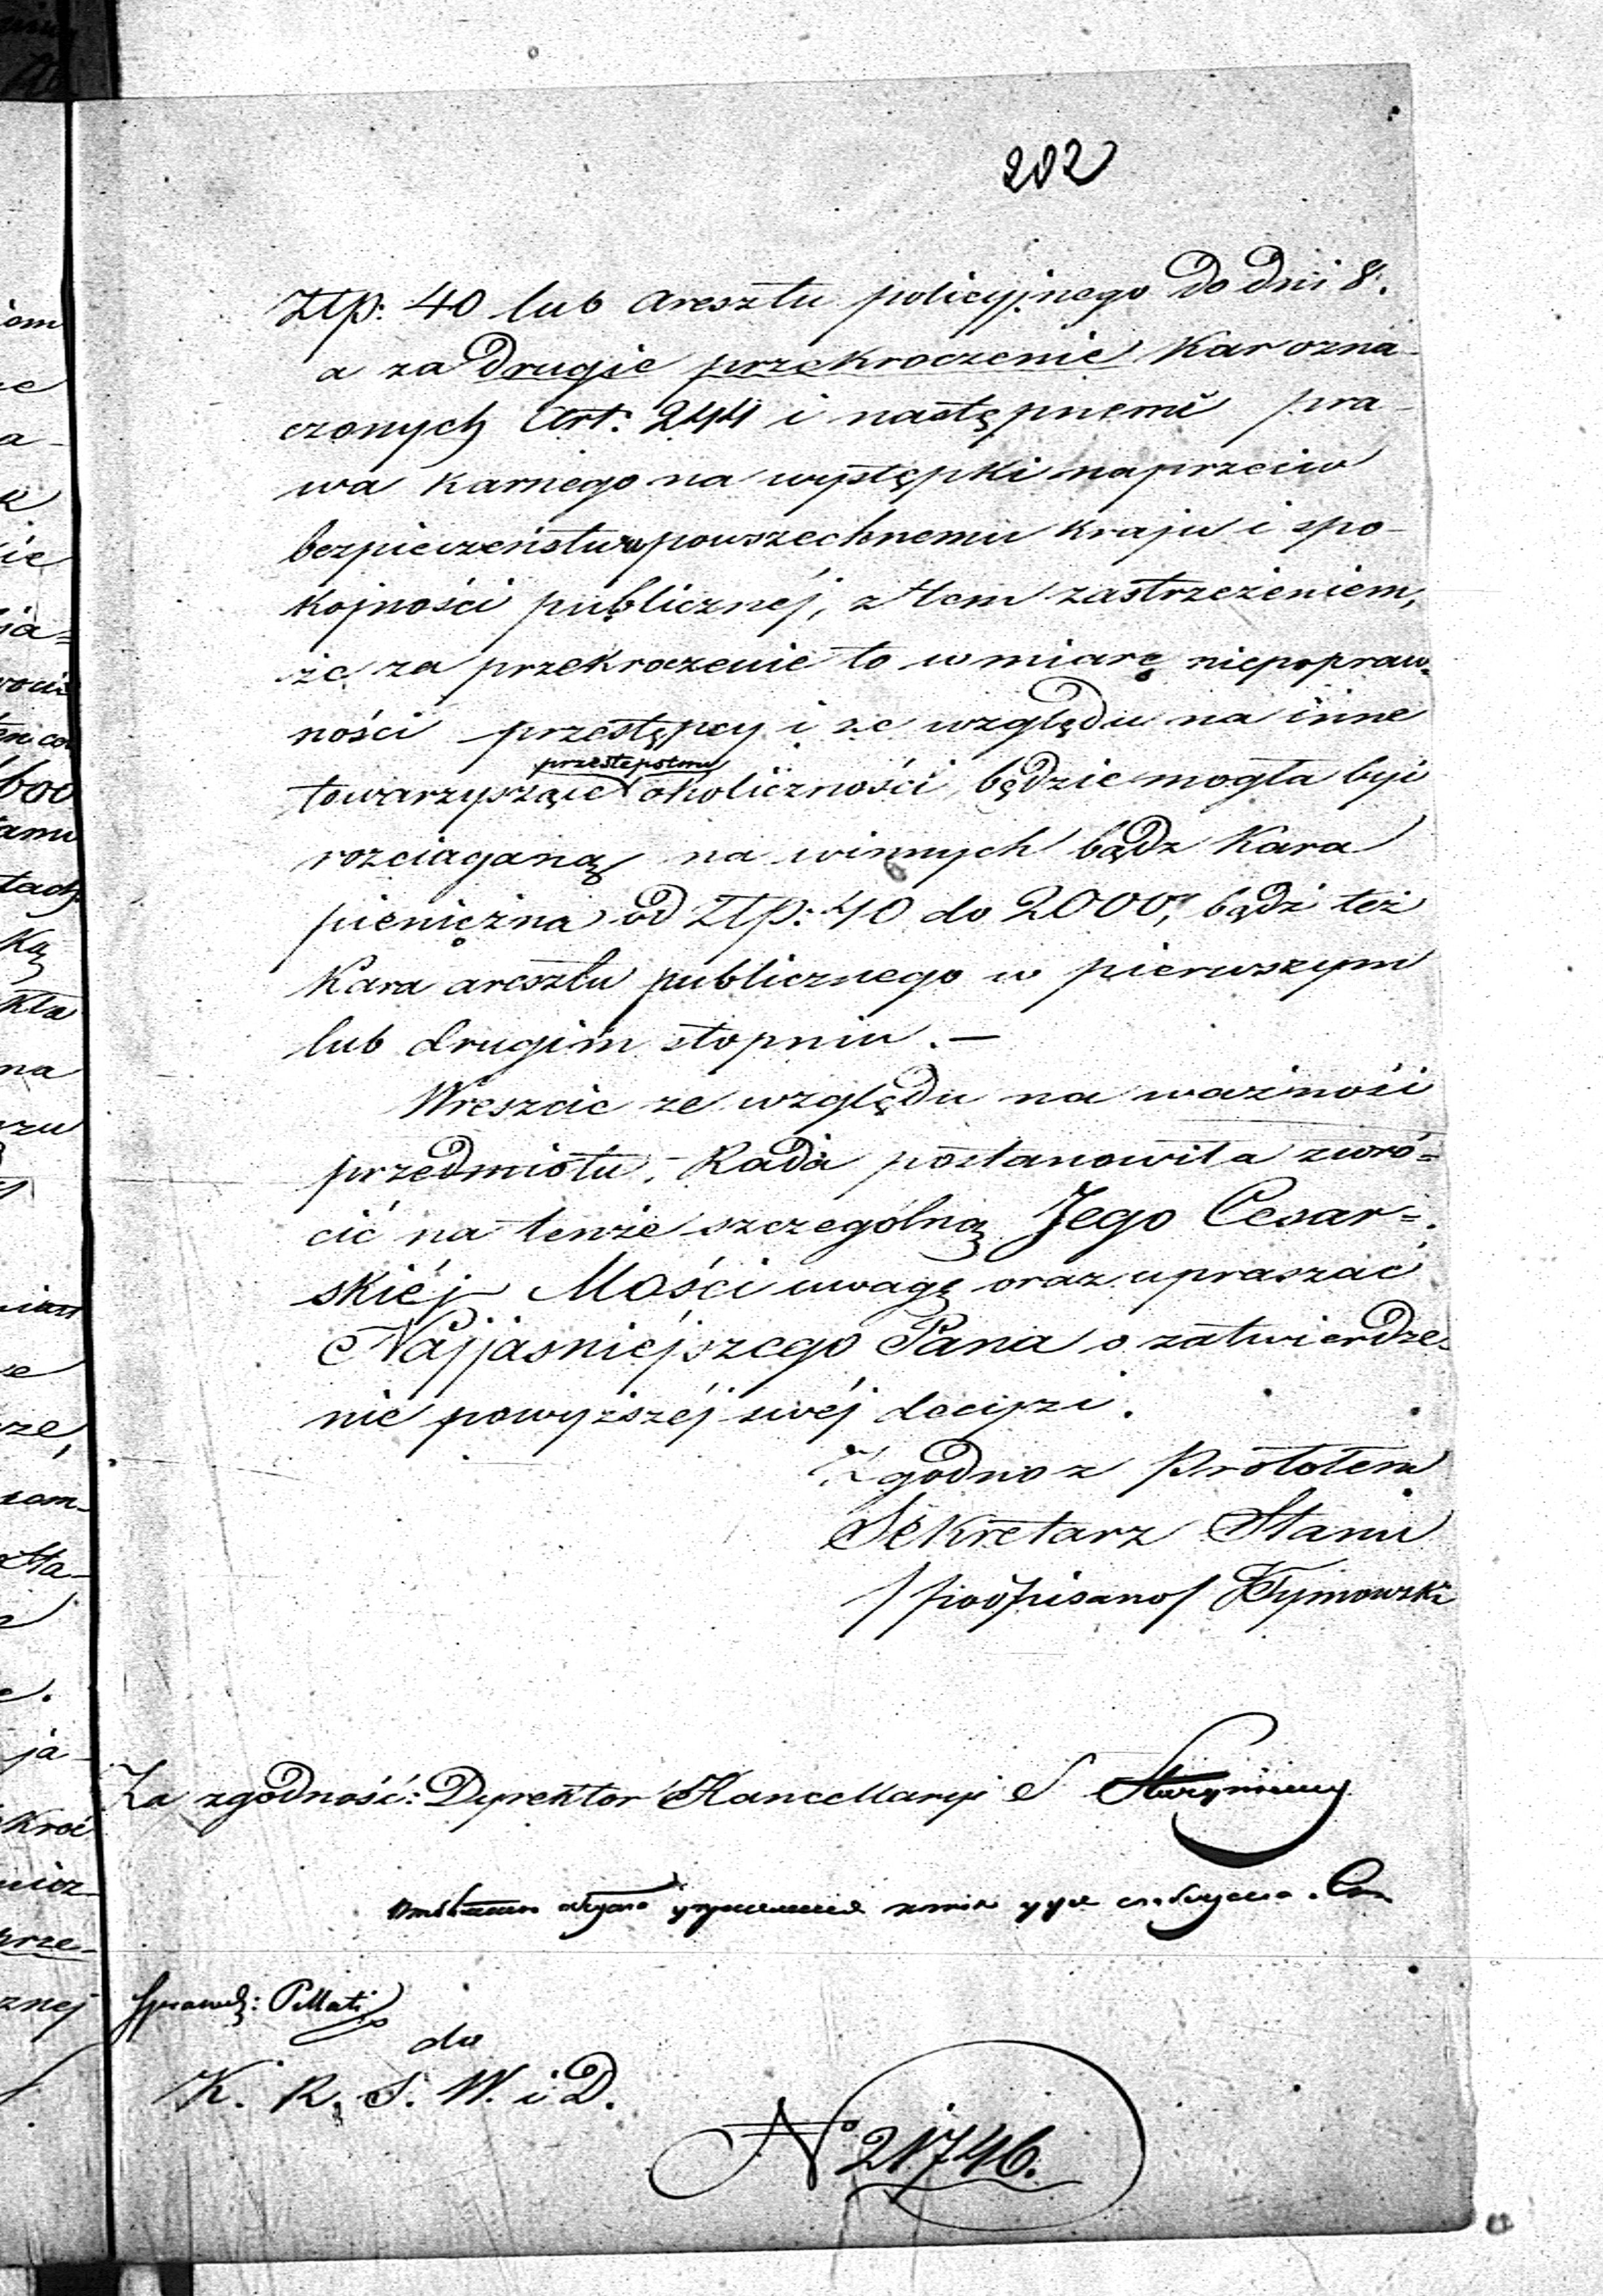 202
Złp: 40 lub aresztu policyjnego do dni 8.
a za drugie przekroczenie kar ozna-
czonych Art: 244 i następnemi pra-
wa karnego na występki naprzeciw
bezpieczeństwu powszechnemu kraju i spo-
kojności publicznéj, z tem zastrzeżeniem,
że za przekroczenie to w miarę niepopraw-
ności przestępcy i ze względu na inne
przestępstwu
towarzyszące okoliczności będzie mogła być
rozciąganą na winnych bądz kara
pieniężna od Złp: 40 do 2000, bądź też
kara aresztu publicznego w pierwszym
lub drugim stopniu. —
Wreszcie ze względu na ważność
przedmiotu, Rada postanowiła zwró=
cić na tenże szczególną Jego Cesar=
skiéj Mości uwagę oraz upraszać
Najjaśniéjszego Pana o zatwierdze-
nie powyższéj swéj decyzi.
Zgodno z Protołem
Sekretarz Stanu
/podpisano/ Tymowski
Za zgodność: Dyrektor Kancellaryi
Sprawdz:
do
K. R. S. W. i D.
N° 21746.